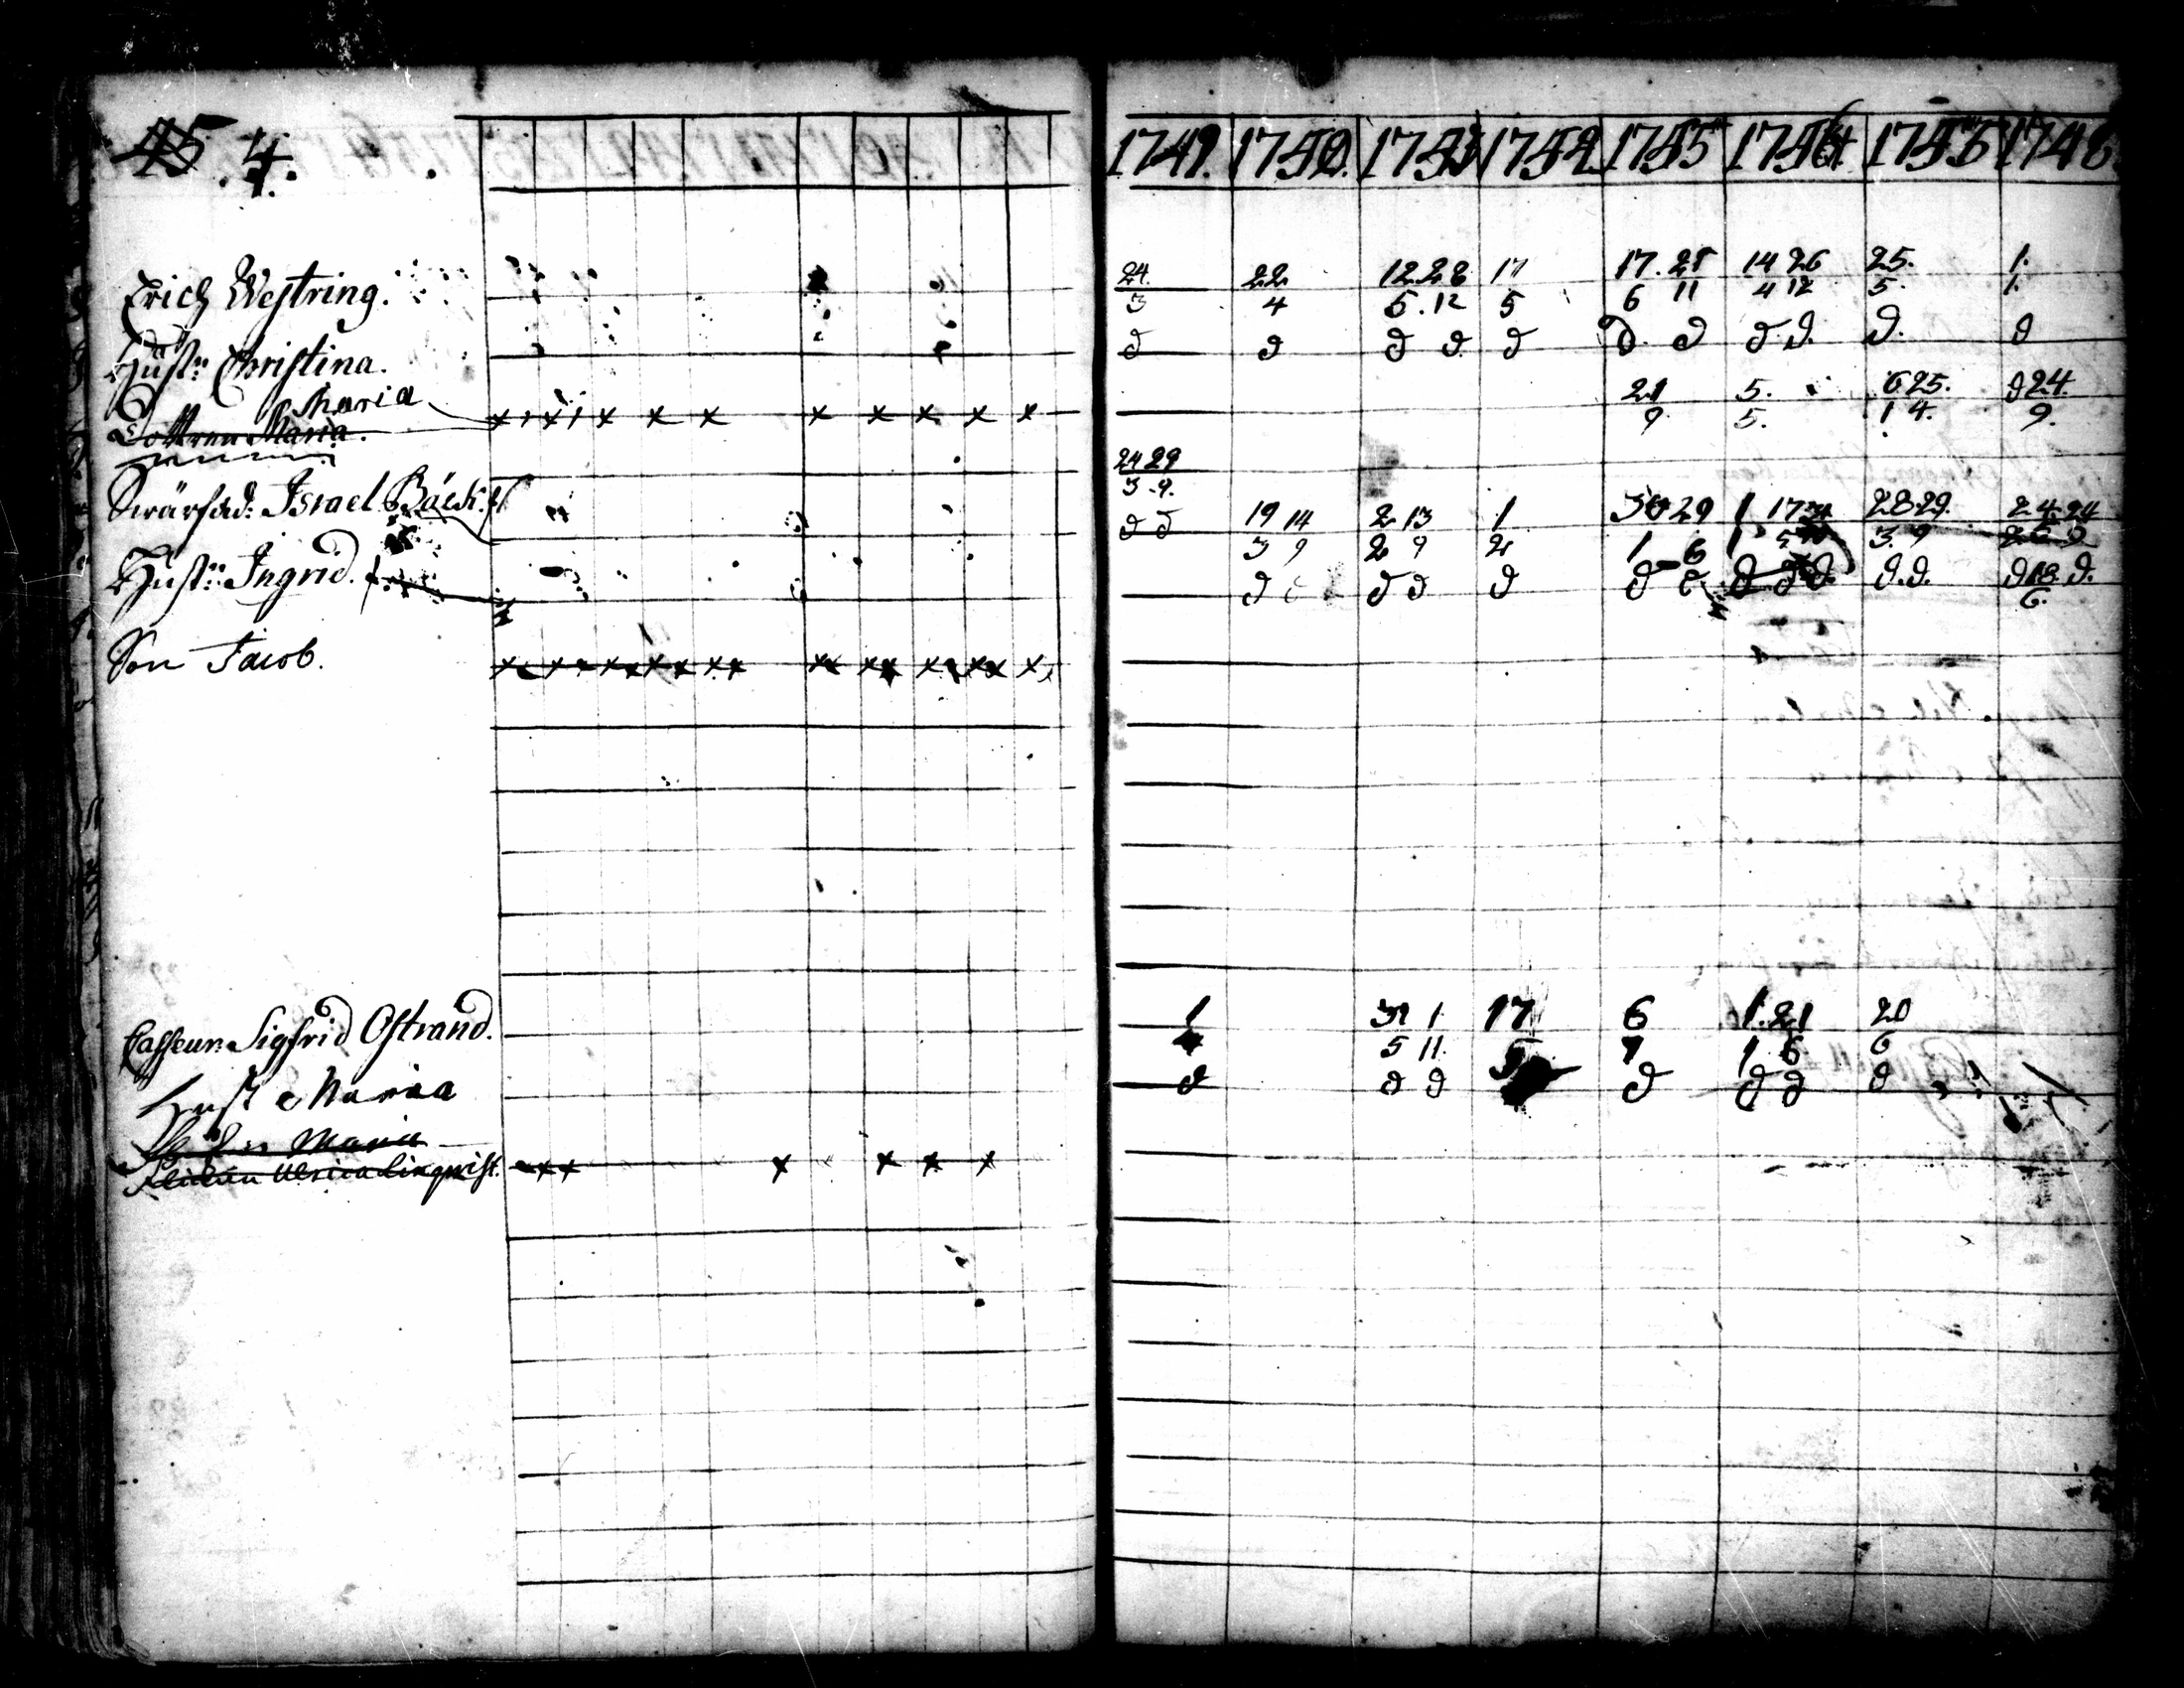 45 4.
1749. 1750. 1753 1752 1755 1756 1748
Erich Westring.
24. 22 12.28 17 17.21 14 26 25. 1.
3 4 5.12 5 6 11 4 12 5. 1.
Hust: Christina.
∂ ∂ ∂ ∂ ∂ ∂ ∂ ∂ ∂. ∂. ∂
Maria
Dottren Maria.
x x x x x x x x x x
21 5. 6 25. ∂ 24.
9. 5. 1 4. 9.
24 29
3.9.
Swärfad: Israel Bäck.
∂ ∂ 19 14 2 13 1 30 29 1 17 28 29. 24
3 9 2 9 2 1 6 1 3. 9
Hust: Ingrid.
∂ ∂ ∂ ∂ ∂ ∂ ∂ ∂. ∂. ∂ 18. ∂.
6.
Son Jacob.
1 31 1 17 6 1.21 20
Casseur: Sigfrid Ostrand.
5 11. 5 7 1 6 6
Hust Maria
∂ ∂ ∂ ∂ ∂ ∂ ∂
Maria
Ulrica Linqwist.
x x x x x x